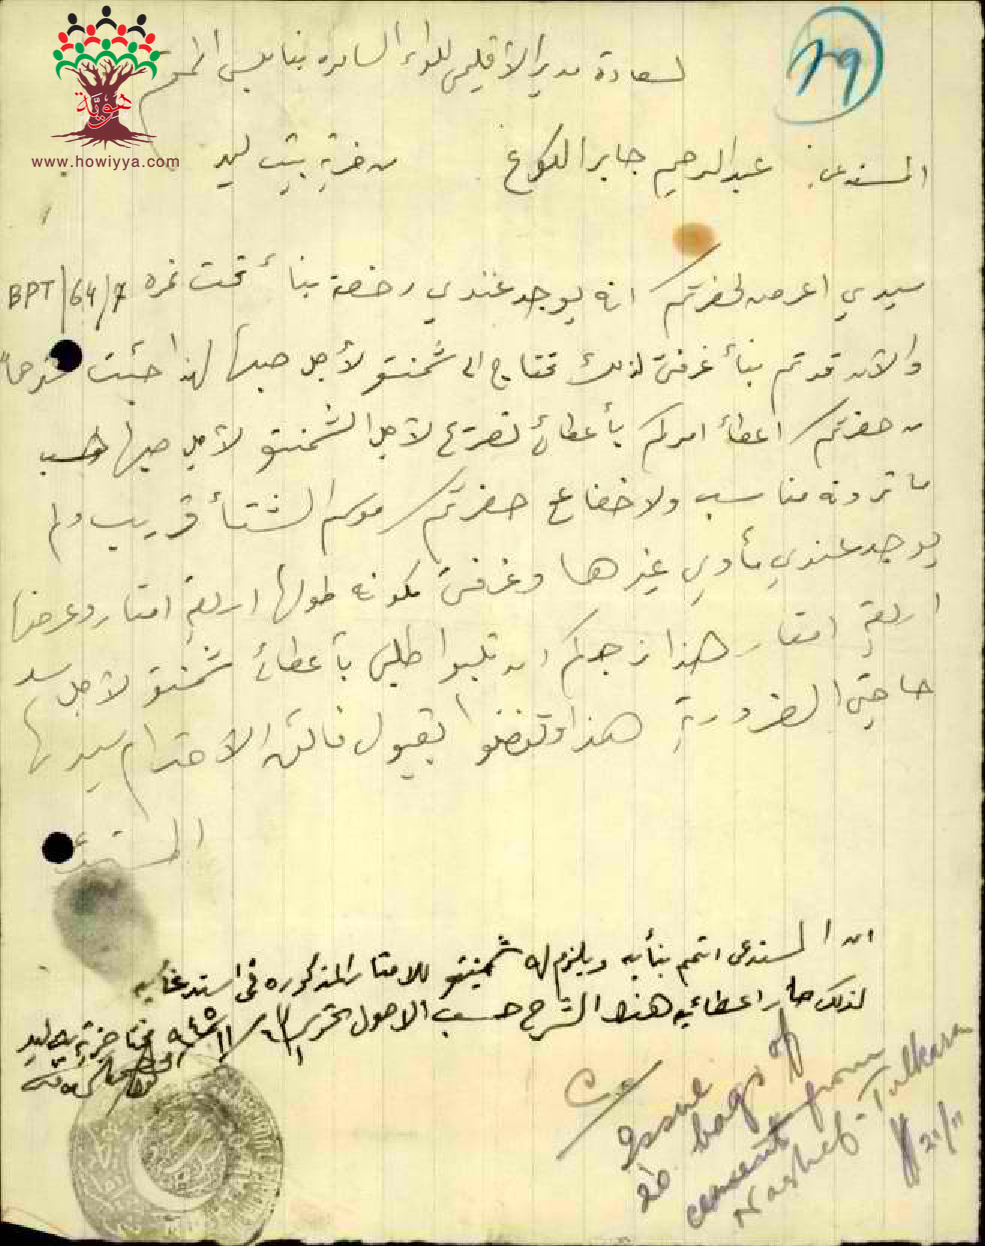 هوية
www.howiyya.com
79
لسعادة مدير الاقليمي للواء السامره بنابلس المحترم
المستدعي: عبدالرحيم جابر الكوع من قرية بيت ليد
سيدي اعرض لحضرتكم انه يوجد عندي رخصة بنأ تحت نمره BPT/64/7
والان قد تم بنأ غرفتي لذلك تحتاج الى شمنتو لأجل صبها لهذا جئت مسترحماً
من حضرتكم اعطأ امركم بأعطائ تصريح لأجل الشمنتو لأجل صبها حسب
ما ترونه مناسب ولا خفا حضرتكم موسم الشتأ قريب ولم
يوجد عندي مأوى غيرها وغرفتي مكونه طولها اربعة امتار وعرضها
اربعة امتار هذا نرجوكم ان تلبوا طلبي بأعطائ شمنتو لأجل سد
حاجتي الضرورية هذا وتفضلوا بقبول فائق الاحترام سيدي
المستدعي
ان المستدعى اتم بنأيه ويلزم له شمينتو للامتار المذكوره في استدعايه
لذلك صار اعطائيه هذا الشرح حسب الاصول تحريرا ٩٤٥/١١/ مختار قرية بيت ليد
Issue
20 bags of
cement from
Nashef - Tulkarm
21/11